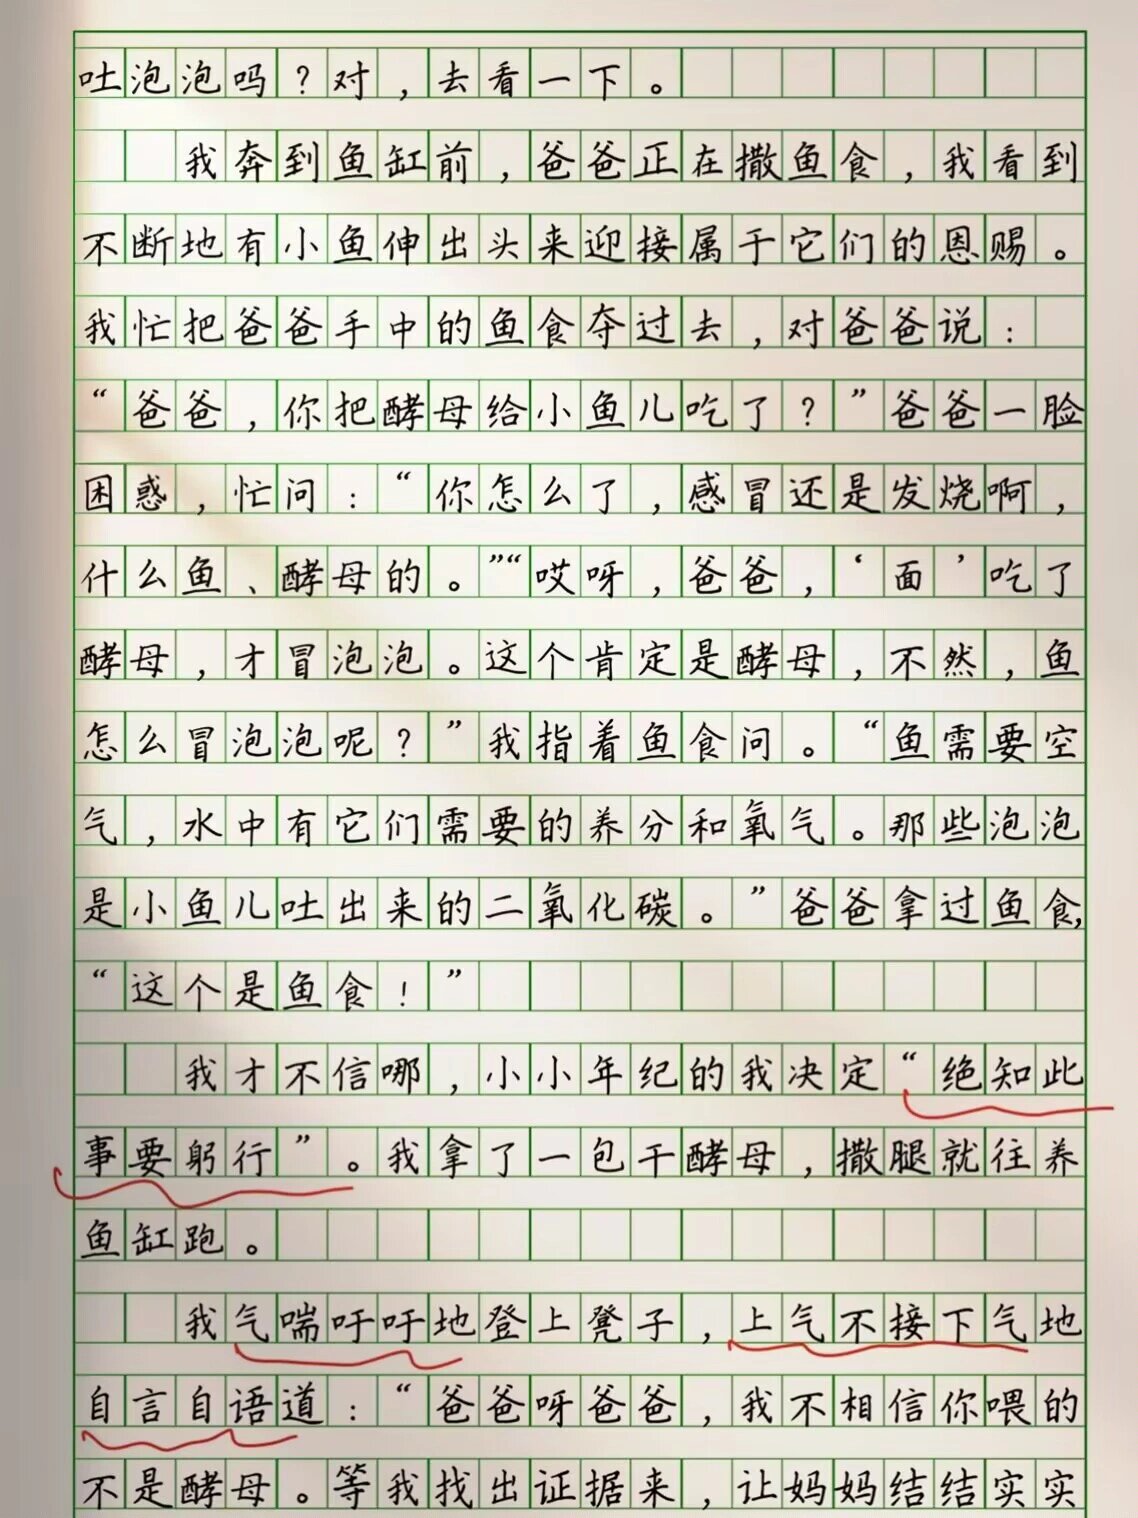 吐泡泡吗？对，去看一下。
我奔到鱼缸前，爸爸正在撒鱼食，我看到
不断地有小鱼伸出头来迎接属于它们的恩赐。
我忙把爸爸手中的鱼食夺过去，对爸爸说：
“爸爸，你把酵母给小鱼儿吃了？”爸爸一脸
困惑，忙问：“你怎么了，感冒还是发烧啊，
什么鱼、酵母的。”“哎呀，爸爸，‘面’吃了
酵母，才冒泡泡。这个肯定是酵母，不然，鱼
怎么冒泡泡呢？”我指着鱼食问。“鱼需要空
气，水中有它们需要的养分和氧气。那些泡泡
是小鱼儿吐出来的二氧化碳。”爸爸拿过鱼食，
“这个是鱼食！”
我才不信哪，小小年纪的我决定“绝知此
事要躬行”。我拿了一包干酵母，撒腿就往养
鱼缸跑。
我气喘吁吁地登上凳子，上气不接下气地
自言自语道：“爸爸呀爸爸，我不相信你喂的
不是酵母。等我找出证据来，让妈妈结结实实